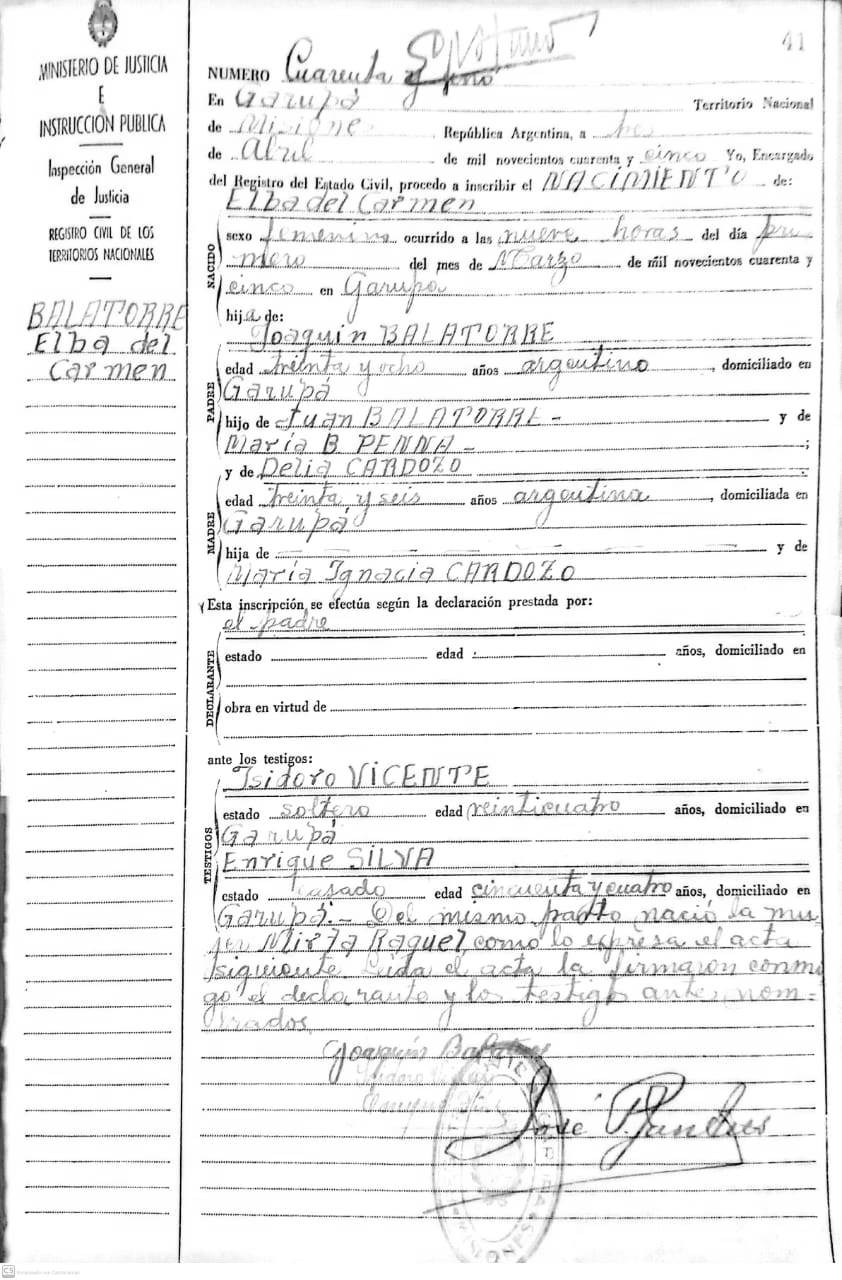 MINISTERIO DE JUSTICIA
E
INSTRUCCIÓN PUBLICA
Inspección General
de Justicia
REGISTRO CIVIL DE LOS
TERRITORIOS NACIONALES
BALATORRE
Elba del
Carmen
41
NUMERO Cuarenta y uno
En Garupá Territorio Nacional
de Misiones República Argentina, a tres
de Abril de mil novecientos cuarenta y cinco Yo, Encargado
del Registro del Estado Civil, procedo a inscribir el NACIMIENTO de:
Elba del Carmen
NACIDO
sexo femenino ocurrido a las nueve horas del día pri
mero del mes de Marzo de mil novecientos cuarenta y
cinco en Garupá
hija de:
Joaquin BALATORRE
PADRE
edad treinta y ocho años argentino, domiciliado en
Garupá
hijo de Juan BALATORRE - y de
María B. PENNA - ;
y de Delia CARDOZO
MADRE
edad treinta y seis años argentina, domiciliada en
Garupá
hija de y de
María Ignacia CARDOZO
Esta inscripción se efectúa según la declaración prestada por:
el padre
DECLARANTE
estado edad años, domiciliado en
obra en virtud de
ante los testigos:
Isidoro VICENTE
TESTIGOS
estado soltero edad veinticuatro años, domiciliado en
Garupá
Enrique SILVA
estado casado edad cincuenta y cuatro años, domiciliado en
Garupá.- Del mismo parto nació la mu-
jer Mirta Raquel, como lo expresa el acta
siguiente. Leída el acta la firmaron conmi
go el declarante y los testigos antes nom-
brados.
Joaquín
José P. Sanches
CS Escaneado con CamScanner